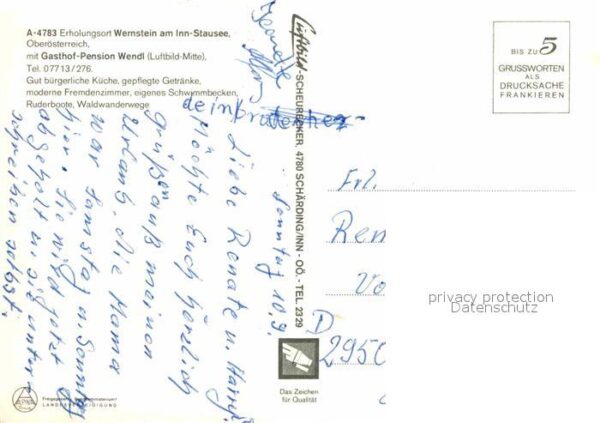 A-4783 Erholungsort Wernstein am Inn-Stausee,
Oberösterreich,
mit Gasthof-Pension Wendl (Luftbild-Mitte),
Tel. 07713/276.
Gut bürgerliche Küche, gepflegte Getränke,
moderne Fremdenzimmer, eigenes Schwimmbecken,
Ruderboote, Waldwanderwege
Luftbild-SCHEURECKER, 4780 SCHÄRDING/INN - OÖ. - TEL. 2329
BIS ZU 5
GRUSSWORTEN
ALS
DRUCKSACHE
FRANKIEREN
Sonntag 10.9.
Liebe Renate u. Harry!
Möchte Euch herzlich
grüßen aus meinen
Urlaub. Die Mama
war Samstag u. Sonntag
hier. Sie wird jetzt
abgeholt u. sie unter
schreiben selbst.
dein
Frl.
Ren
Vo
D
2950
privacy protection
Datenschutz
Das Zeichen
für Qualität
LANDESVERTEIDIGUNG